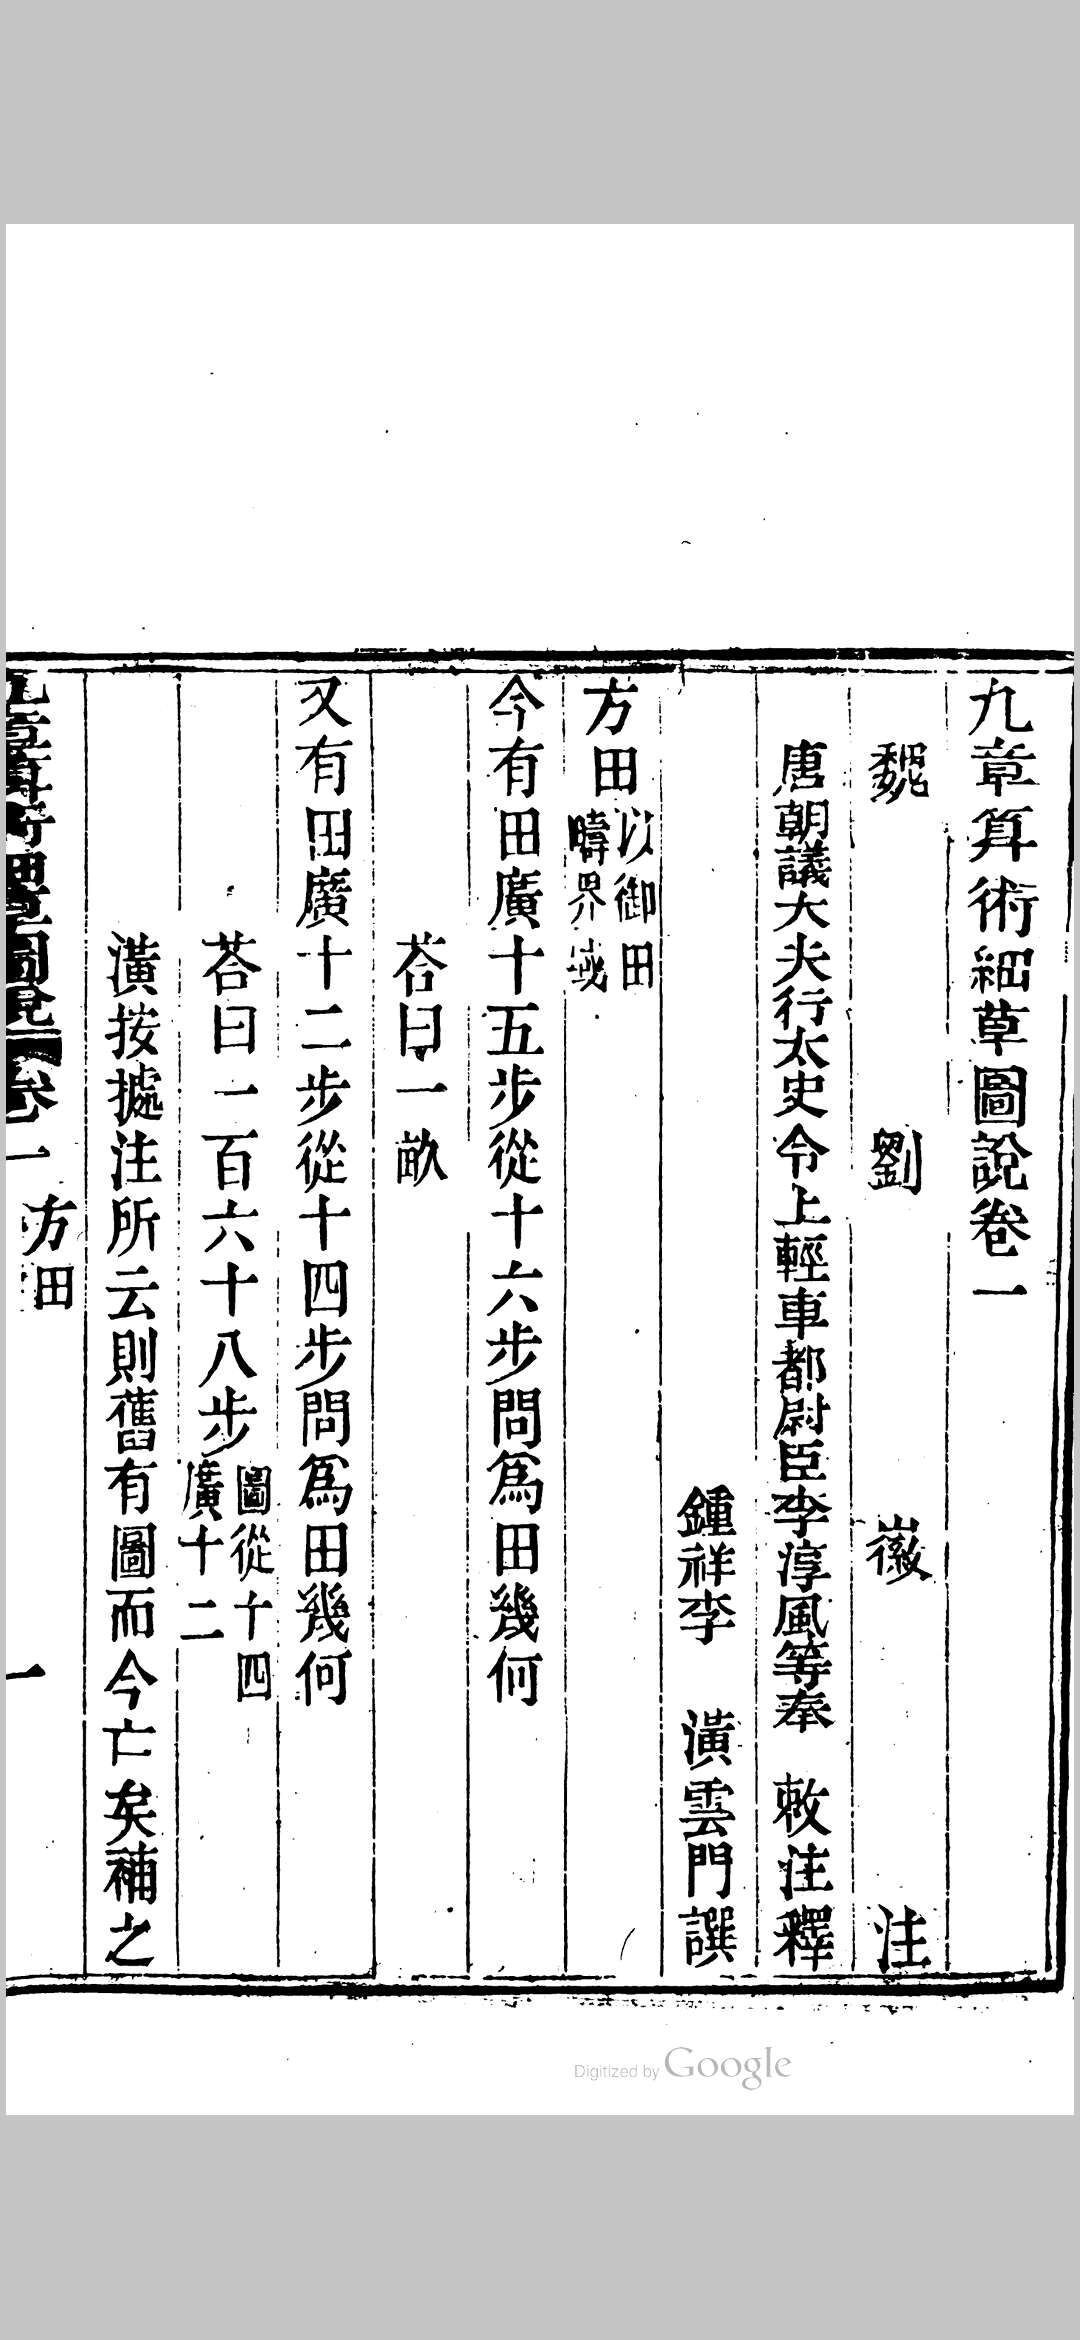 九章算術細草圖說卷一
魏 劉 徽 注
唐朝議大夫行太史令上輕車都尉臣李淳風等奉 敕注釋
鍾祥李 潢雲門譔
方田以御田疇界域
今有田廣十五步從十六步問爲田幾何
荅曰一畝
又有田廣十二步從十四步問爲田幾何
荅曰一百六十八步圖從十四廣十二
潢按據注所云則舊有圖而今亡矣補之
九章算術細草圖說 卷一 方田 一
Digitized by Google